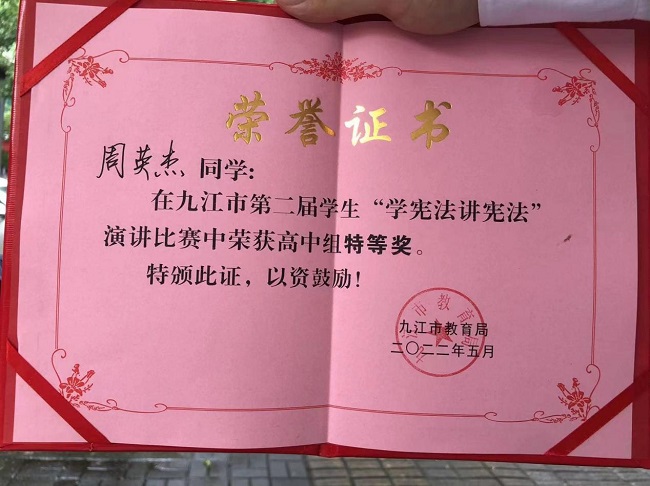 荣誉证书
周英杰 同学：
在九江市第二届学生“学宪法讲宪法”
演讲比赛中荣获高中组特等奖。
特颁此证，以资鼓励！
九江市教育局
二〇二二年五月
九江市教育局